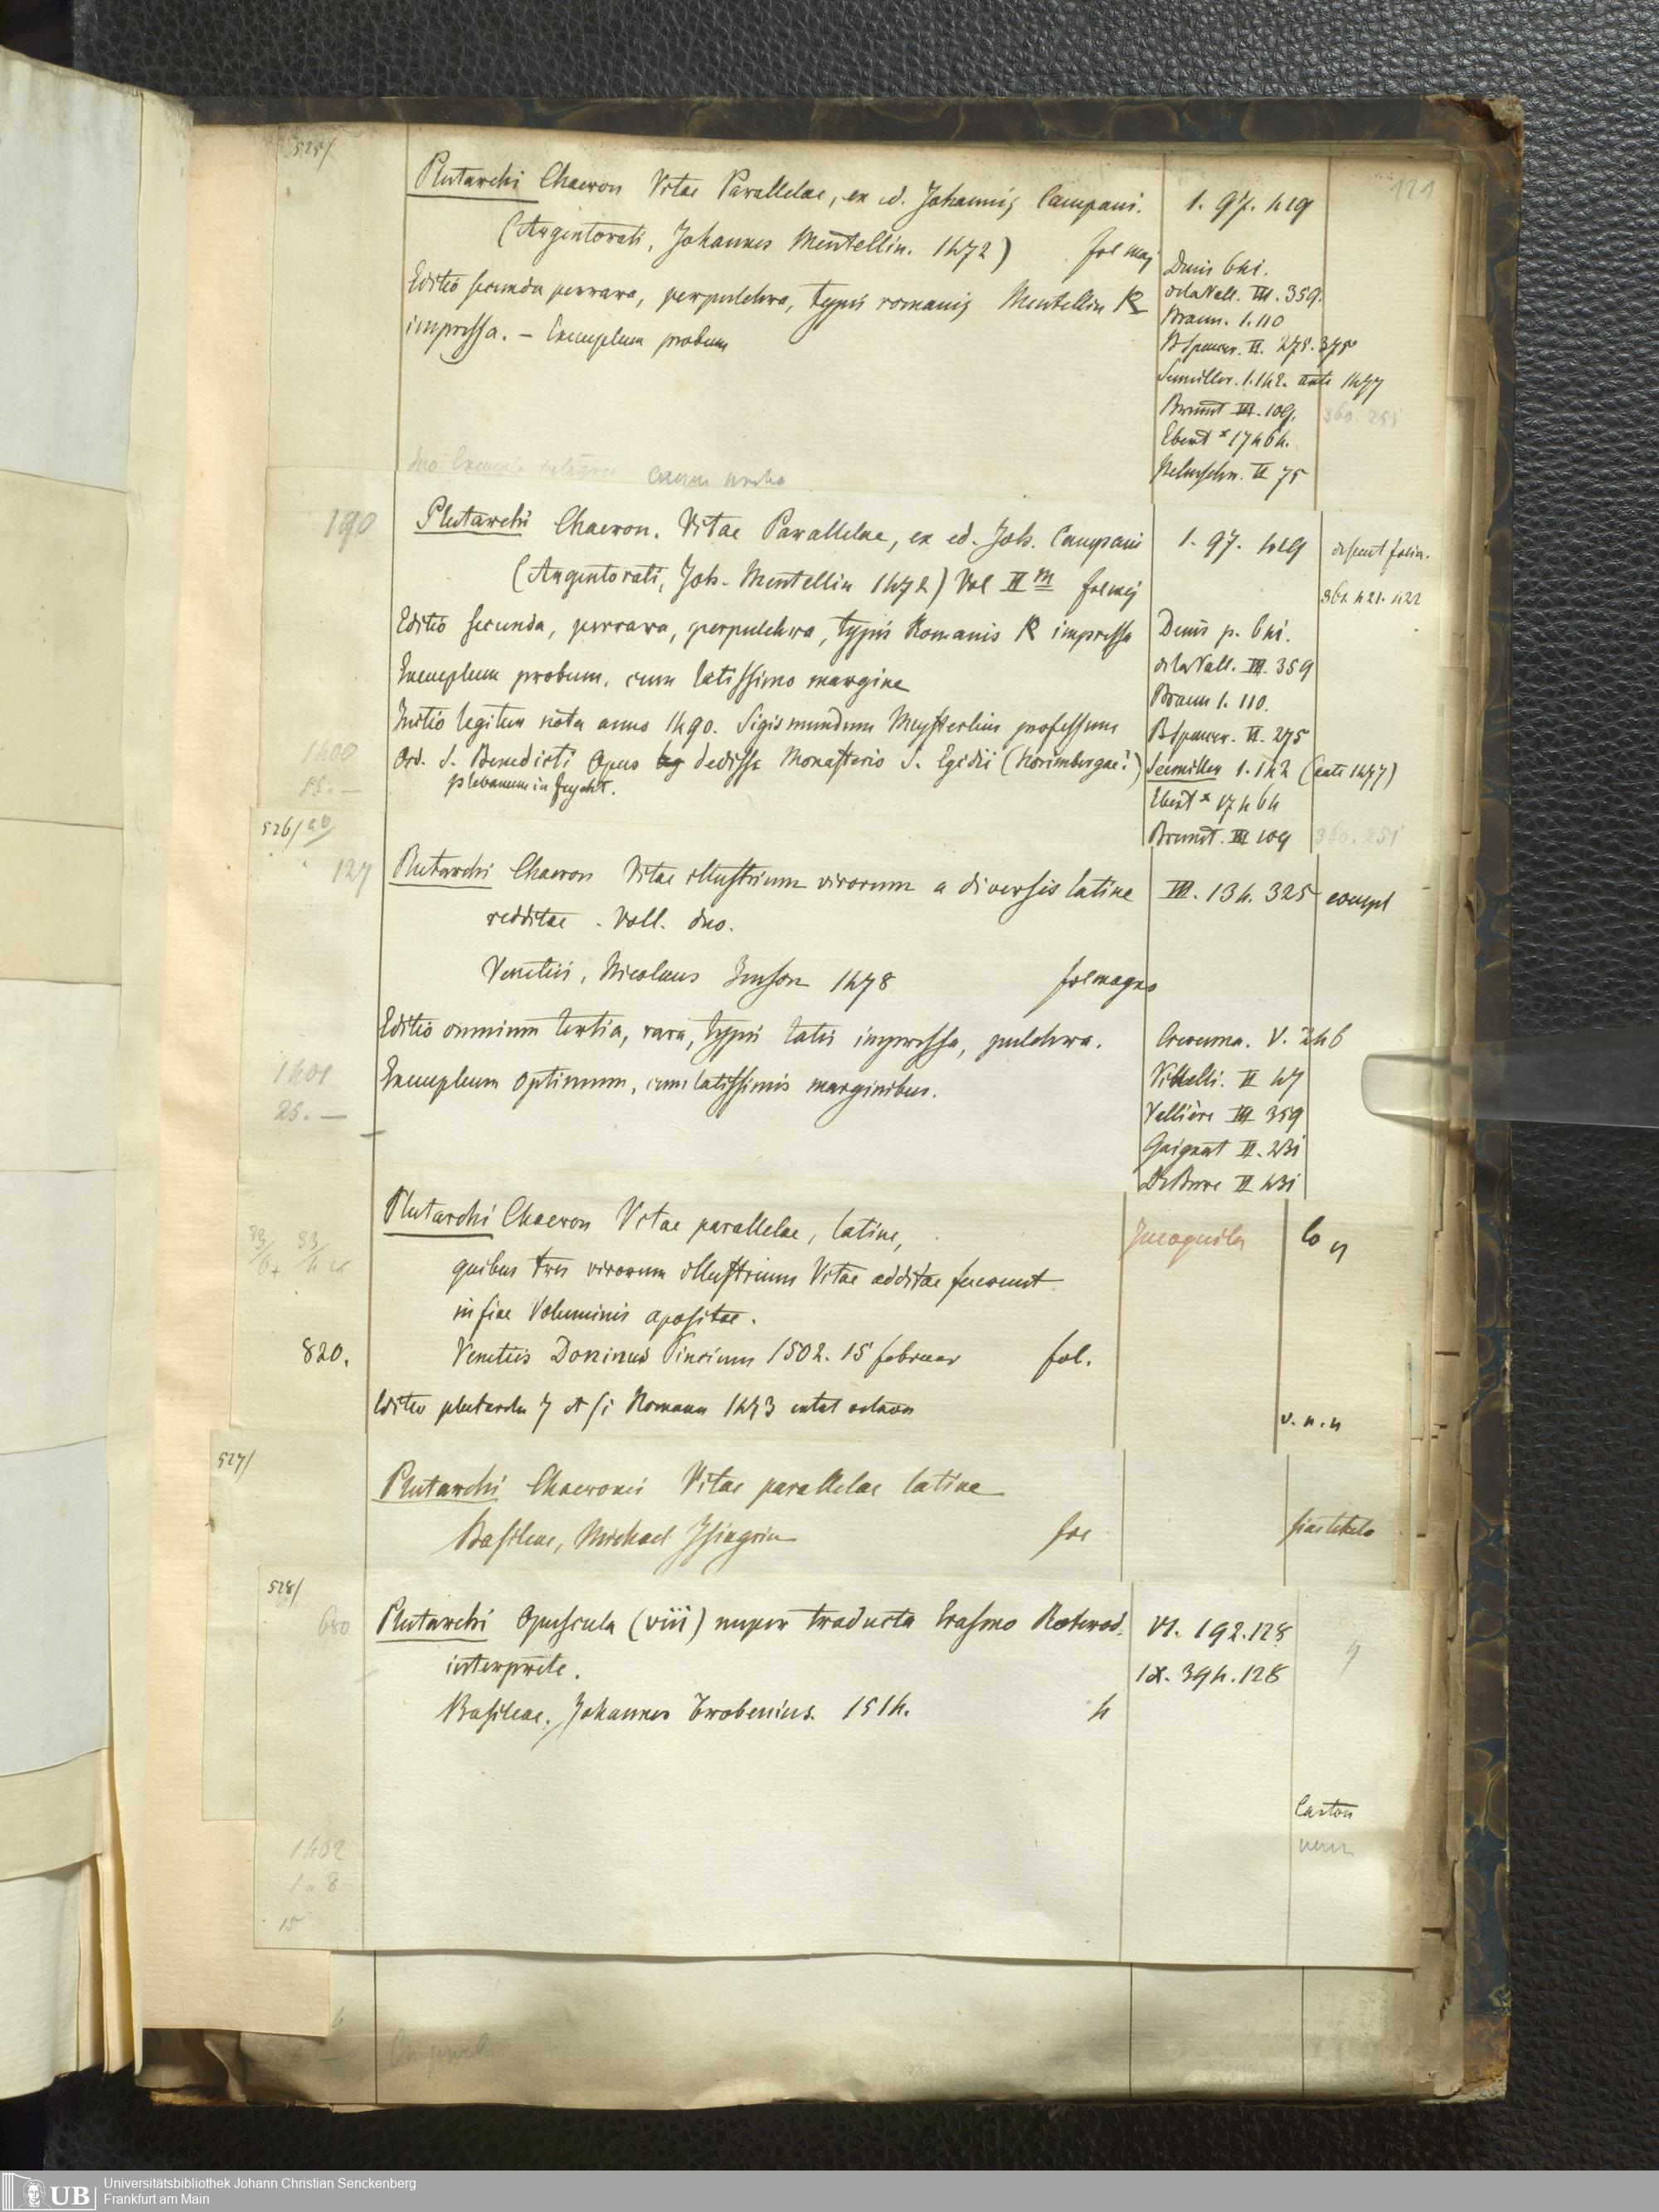 525/
121
Plutarchi Chaeron Vitae Parallelae, ex ed. Johannis Campani. 1. 97. 419
(Argentorati, Johannes Mentellin. 1472) fol maj
Denis 641.
Editio secunda perrara, perpulchra, typis romanis Mentellin R
de la Vall. III. 359.
impressa. – Exemplum probum
Braun. 1. 110
B Spencer. II. 275. 375
Seemiller. 1. 142. ante 1477
Brunet III. 109. 360. 251
Ebert * 17464.
Helmschn. II 75
duo Exempla integra
190
Plutarchi Chaeron. Vitae Parallelae, ex ed. Joh. Campani 1. 97. 419 desunt folia.
(Argentorati, Joh. Mentellin 1472) Vol II m fol maj 361. 421. 422
Editio secunda, perrara, perpulchra, typis Romanis R impressa Denis p. 641.
Exemplum probum, cum latissimo margine de la Vall. III. 359
Braun 1. 110.
Initio legitur nota anno 1490. Sigismundum Meysterlin professum B Spencer. II. 275
Ord. S. Benedicti Opus dedisse Monasterio S. Egidii (Norimbergae?) Seemiller 1. 142 (ante 1477)
plebanum in
1400
15. —
Ebert * 17464
Brunet. III 109 360. 251
526/
127
Plutarchi Chaeron Vitae illustrium virorum a diversis latine III. 134. 325 compl
redditae. Voll. duo.
Venetiis, Nicolaus Jenson 1478 fol magno
Editio omnium tertia, rara, typis latis impressa, pulchra. Crevenna. V. 246
Exemplum optimum, cum latissimis marginibus. Vitelli. II 47
1401
25. —
Vallière III 359
Gaignat II. 231
De Bure II 431
Plutarchi Chaeron Vitae parallelae, latine, Incognita
quibus tres virorum illustrium Vitae additae fuerunt
in fine Voluminis apositae.
820. Venetiis Doninus Pincium 1502. 15 februar fol.
v. n. n
527/
Plutarchi Chaeronei Vitae parallelae latine
Basileae, Michael Isingrin fol sine titulo
528/
680
Plutarchi Opuscula (viii) nuper traducta Erasmo Roterod. VI. 192. 128
interprete. IX. 394. 128
Basileae. Johannes Frobenius. 1514. 4
Carton
1402
1 " 8
15
UB Universitätsbibliothek Johann Christian Senckenberg
Frankfurt am Main